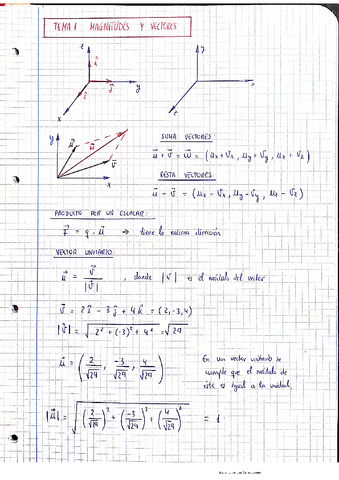 TEMA 1 MAGNITUDES Y VECTORES
z
y
x
y
x
z
y
x
SUMA VECTORES:
u⃗ + v⃗ = w⃗ = (ux + vx, uy + vy, uz + vz)
RESTA VECTORES:
u⃗ - v⃗ = (ux - vx, uy - vy, uz - vz)
PRODUCTO POR UN ESCALAR:
tiene la misma dirección
VECTOR UNITARIO:
u⃗ = v⃗ / |v⃗| , donde |v⃗| es el módulo del vector
v⃗ = 2i⃗ - 3j⃗ + 4k⃗ = (2,-3,4)
|v⃗| = √(2² + (-3)² + 4²) = √29
u⃗ = (2/√29, -3/√29, 4/√29)
En un vector unitario se
cumple que el módulo de
éste es igual a la unidad.
|u⃗| = √((2/√29)² + (-3/√29)² + (4/√29)²) = 1